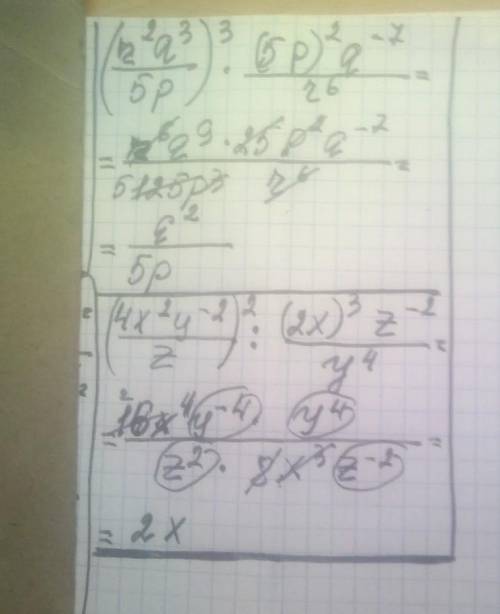 (r²q³/5p)³ · (5p)²q⁻⁷/r⁶ =
= r⁶q⁹ · 25p²q⁻⁷/5125p³ r⁶ =
= q²/5p
(4x²y⁻²/z)² : (2x)³ z⁻²/y⁴ =
= ²16x⁴y⁻⁴ · y⁴/z² · 8x³z⁻² =
= 2x